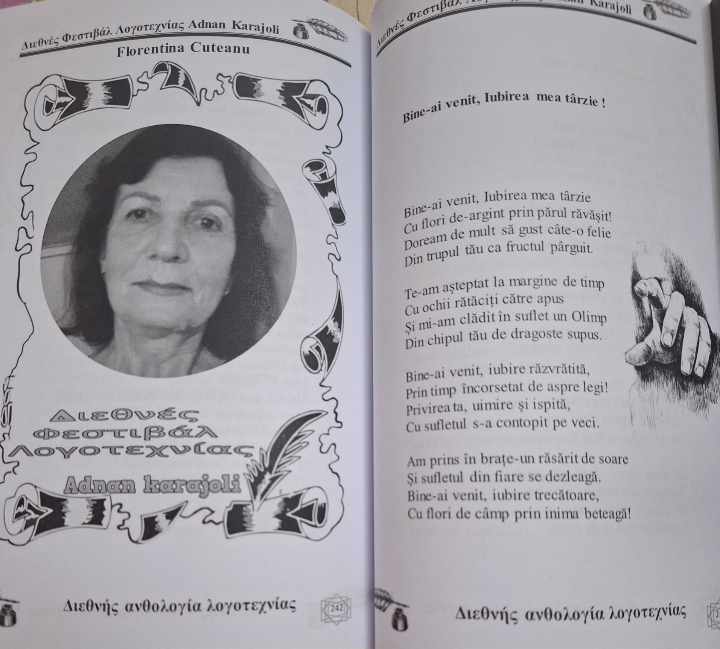 Διεθνές Φεστιβάλ Λογοτεχνίας Adnan Karajoli
Florentina Cuteanu
Διεθνές
Φεστιβάλ
Λογοτεχνίας
Adnan karajoli
Διεθνής ανθολογία λογοτεχνίας
242
Διεθνές Φεστιβάλ Karajoli
Bine-ai venit, Iubirea mea târzie !
Bine-ai venit, Iubirea mea târzie
Cu flori de-argint prin părul răvășit!
Doream de mult să gust câte-o felie
Din trupul tău ca fructul pârguit.
Te-am așteptat la margine de timp
Cu ochii rătăciți către apus
Și mi-am clădit în suflet un Olimp
Din chipul tău de dragoste supus.
Bine-ai venit, iubire răzvrătită,
Prin timp încorsetat de aspre legi!
Privirea ta, uimire și ispită,
Cu sufletul s-a contopit pe veci.
Am prins în brațe-un răsărit de soare
Și sufletul din fiare se dezleagă.
Bine-ai venit, iubire trecătoare,
Cu flori de câmp prin inima beteagă!
Διεθνής ανθολογία λογοτεχνίας